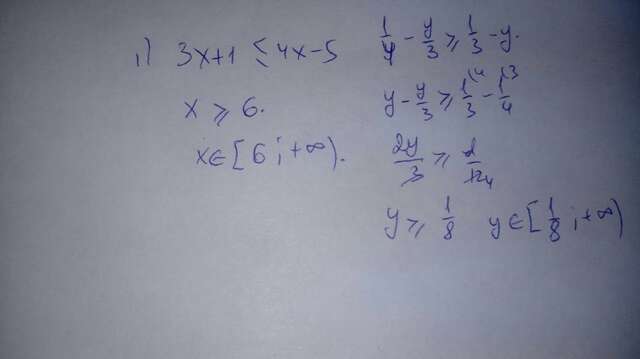 1) 3x+1 ≤ 4x-5
x ≥ 6.
x∈[6;+∞).
1/4 - y/3 ≥ 1/3 - y.
y - y/3 ≥ 1/3 \4 - 1/4 \3
2y/3 ≥ 1/12 4
y ≥ 1/8 y∈[1/8;+∞)